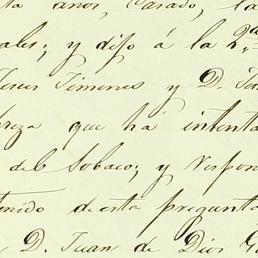 ta años, Casado, la
ales; y dijo á la 2ª
Jesus Jimenes y D. Ju
reza que há intenta
del Sobaco; y Respon
tenido de esta pregunta
D. Juan de Dios Ga